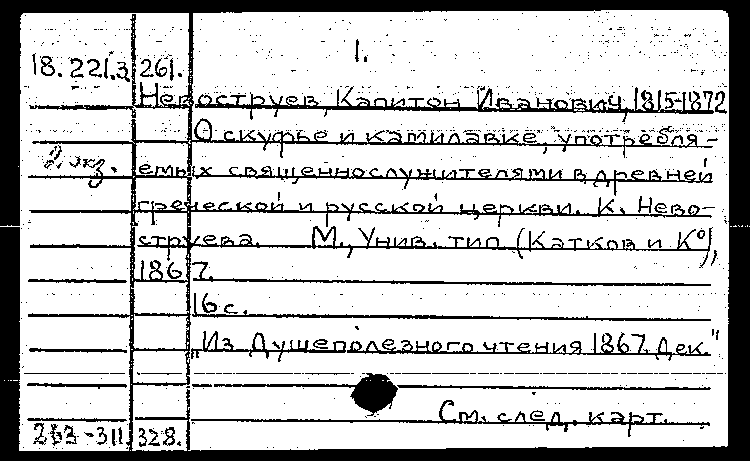 1.
18.221.3.261.
Невоструев, Капитон Иванович, 1815-1872
О скуфье и камилавке, употребля-
2 экз. емых священнослужителями в древней
греческой и русской церкви. К. Нево-
струева. М., Унив. тип (Катков и К°),
1867.
16 с.
„Из Душеполезного чтения 1867. Дек."
См. след. карт.
311.328.